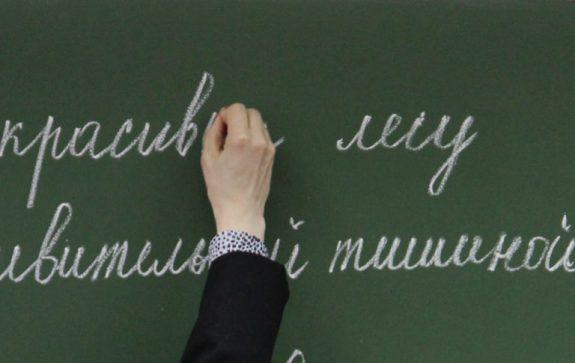 красив лесу
ивитель й тишиной